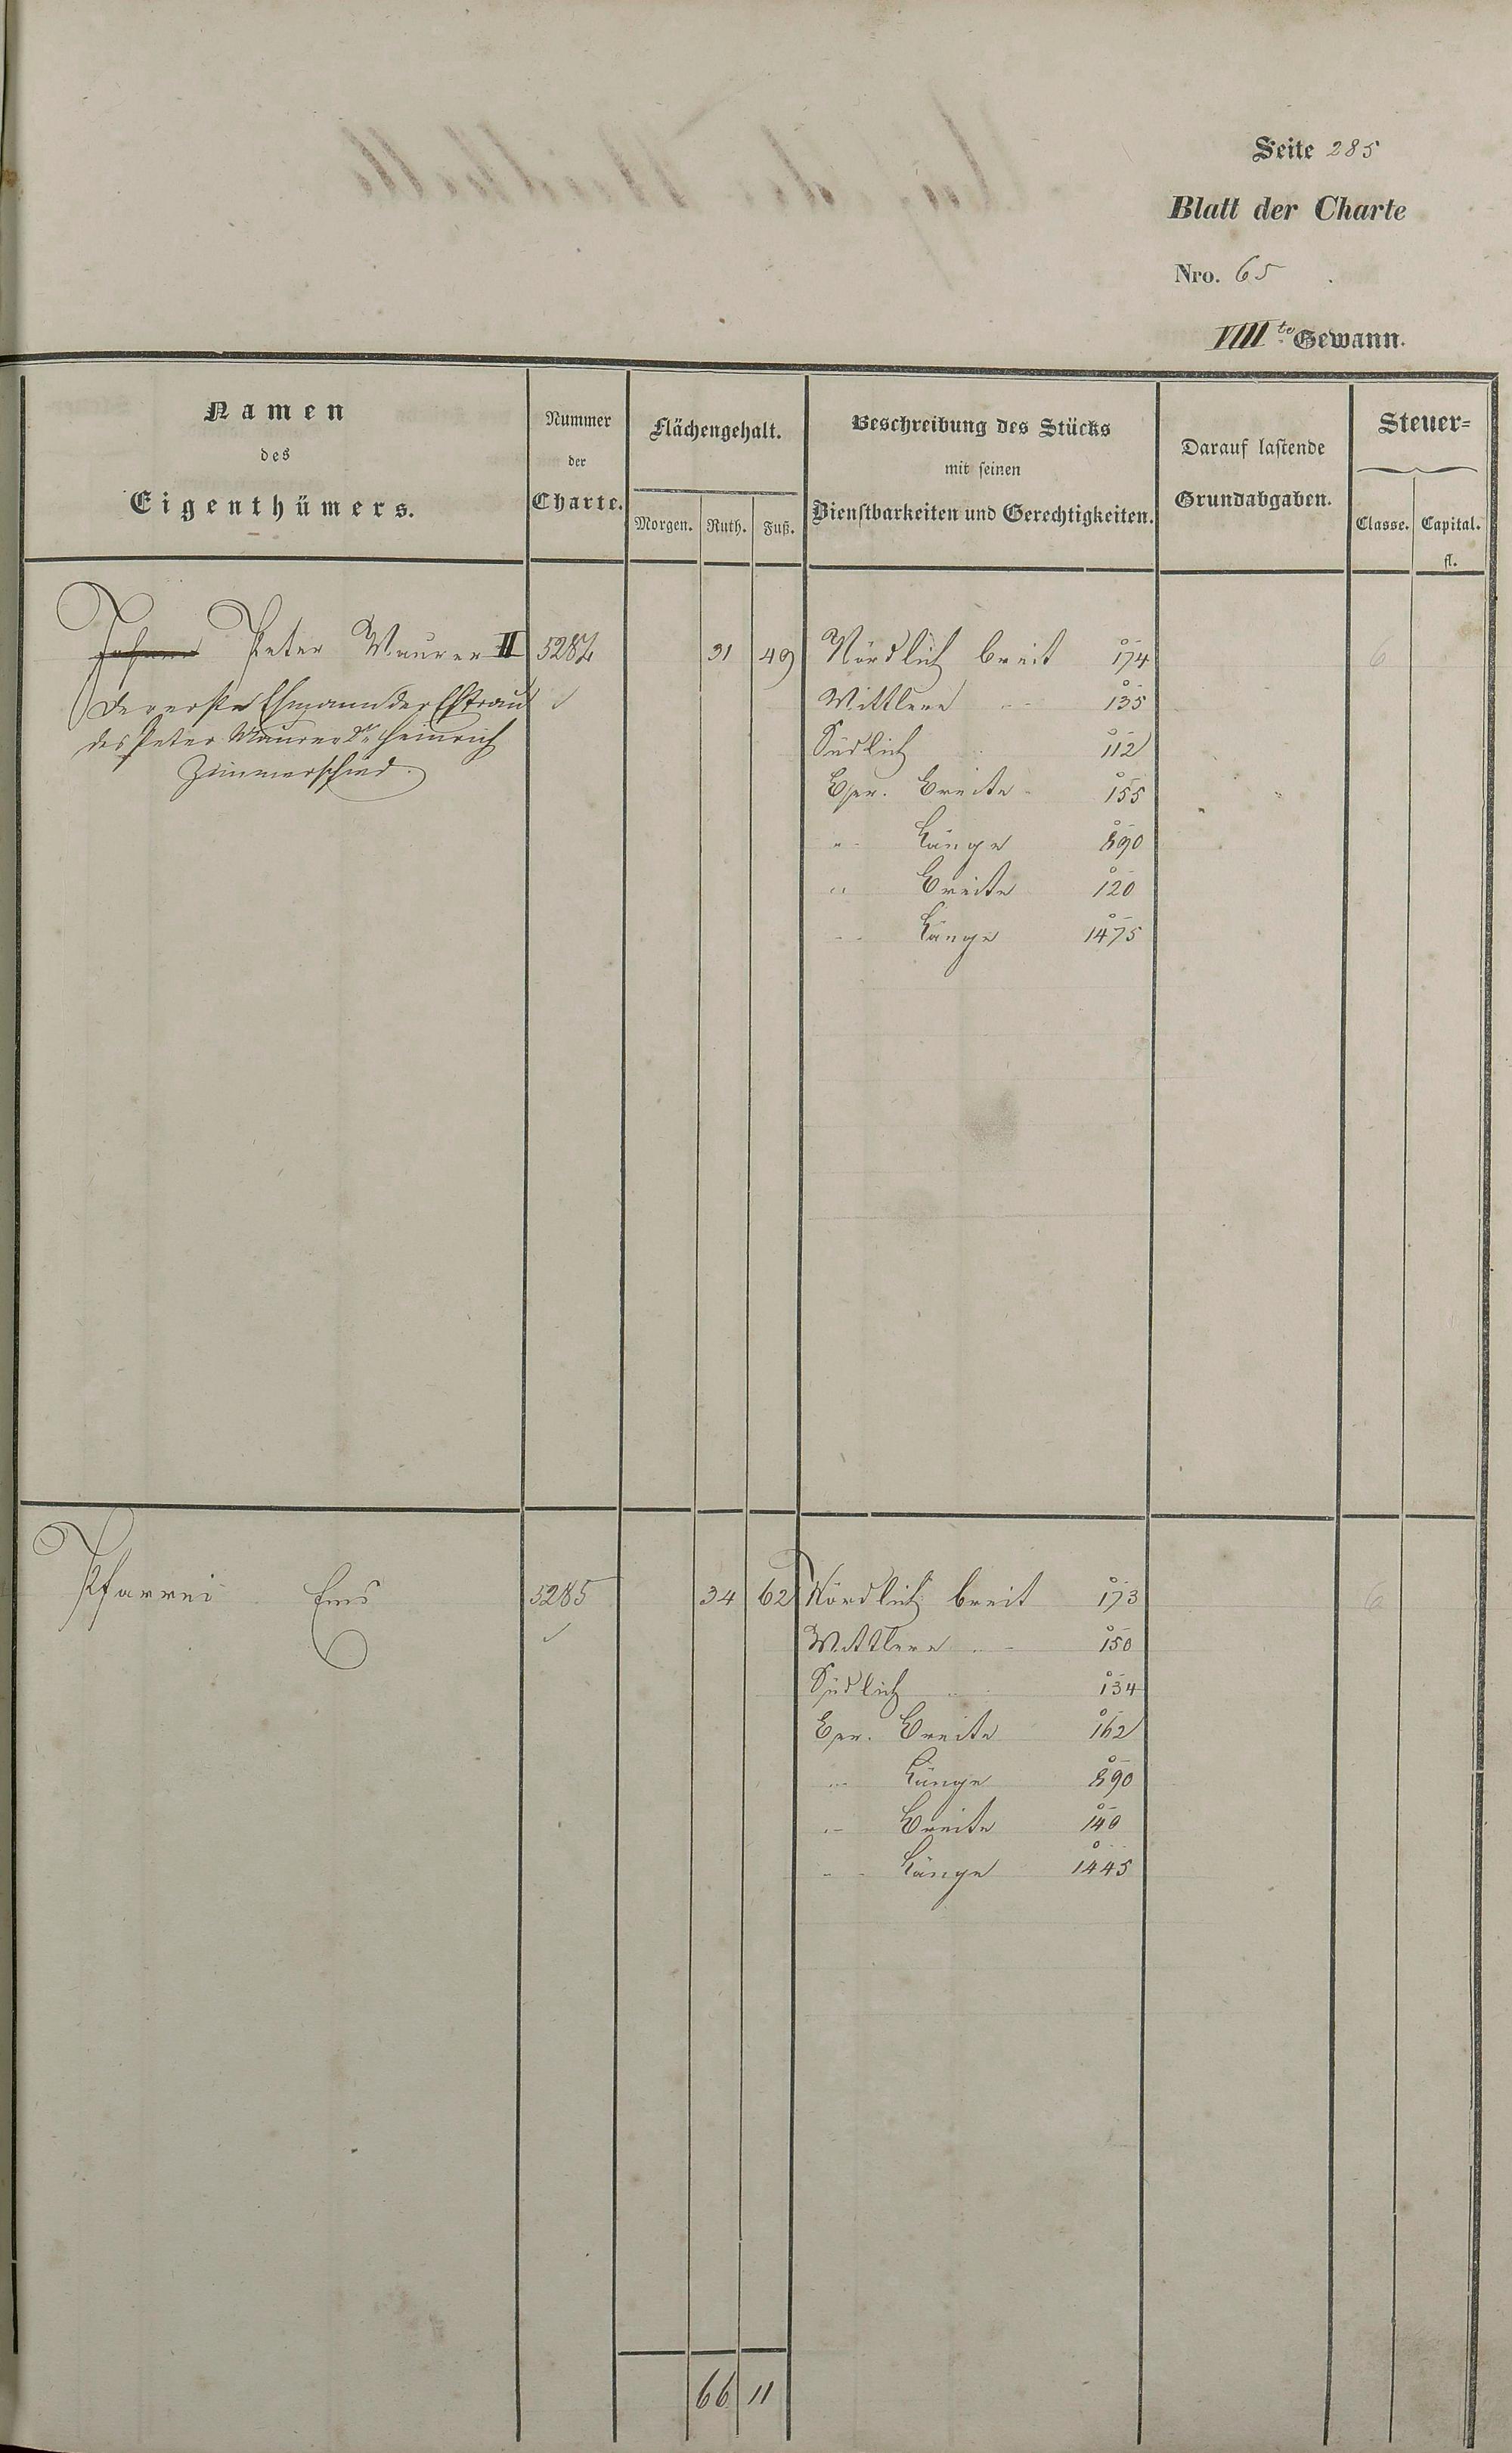 Seite 285
Blatt der Charte
Nro. 65
VIIIte Gewann.
Namen des Eigenthümers.
Nummer der Charte.
Flächengehalt.
Morgen. Ruth. Fuß.
Beschreibung des Stücks mit seinen Dienstbarkeiten und Gerechtigkeiten.
Darauf lastende Grundabgaben.
Steuer-
Classe. Capital.
fl.
Johann Peter Maurer II 5284 31 49 Nördlich breit 174 6
der erste Ehmann der Ehfrau Mittlere 135
des Peter Maurer Heinrich Südlich 112
Zimmerschied. Ger. Breite 155
" Länge 890
" Breite 120
" Länge 1475
Pfarrei Ems 5285 34 62 Nördlich breit 173 6
Mittlere 150
Südlich 134
Ger. Breite 162
" Länge 890
" Breite 140
" Länge 1445
66 11